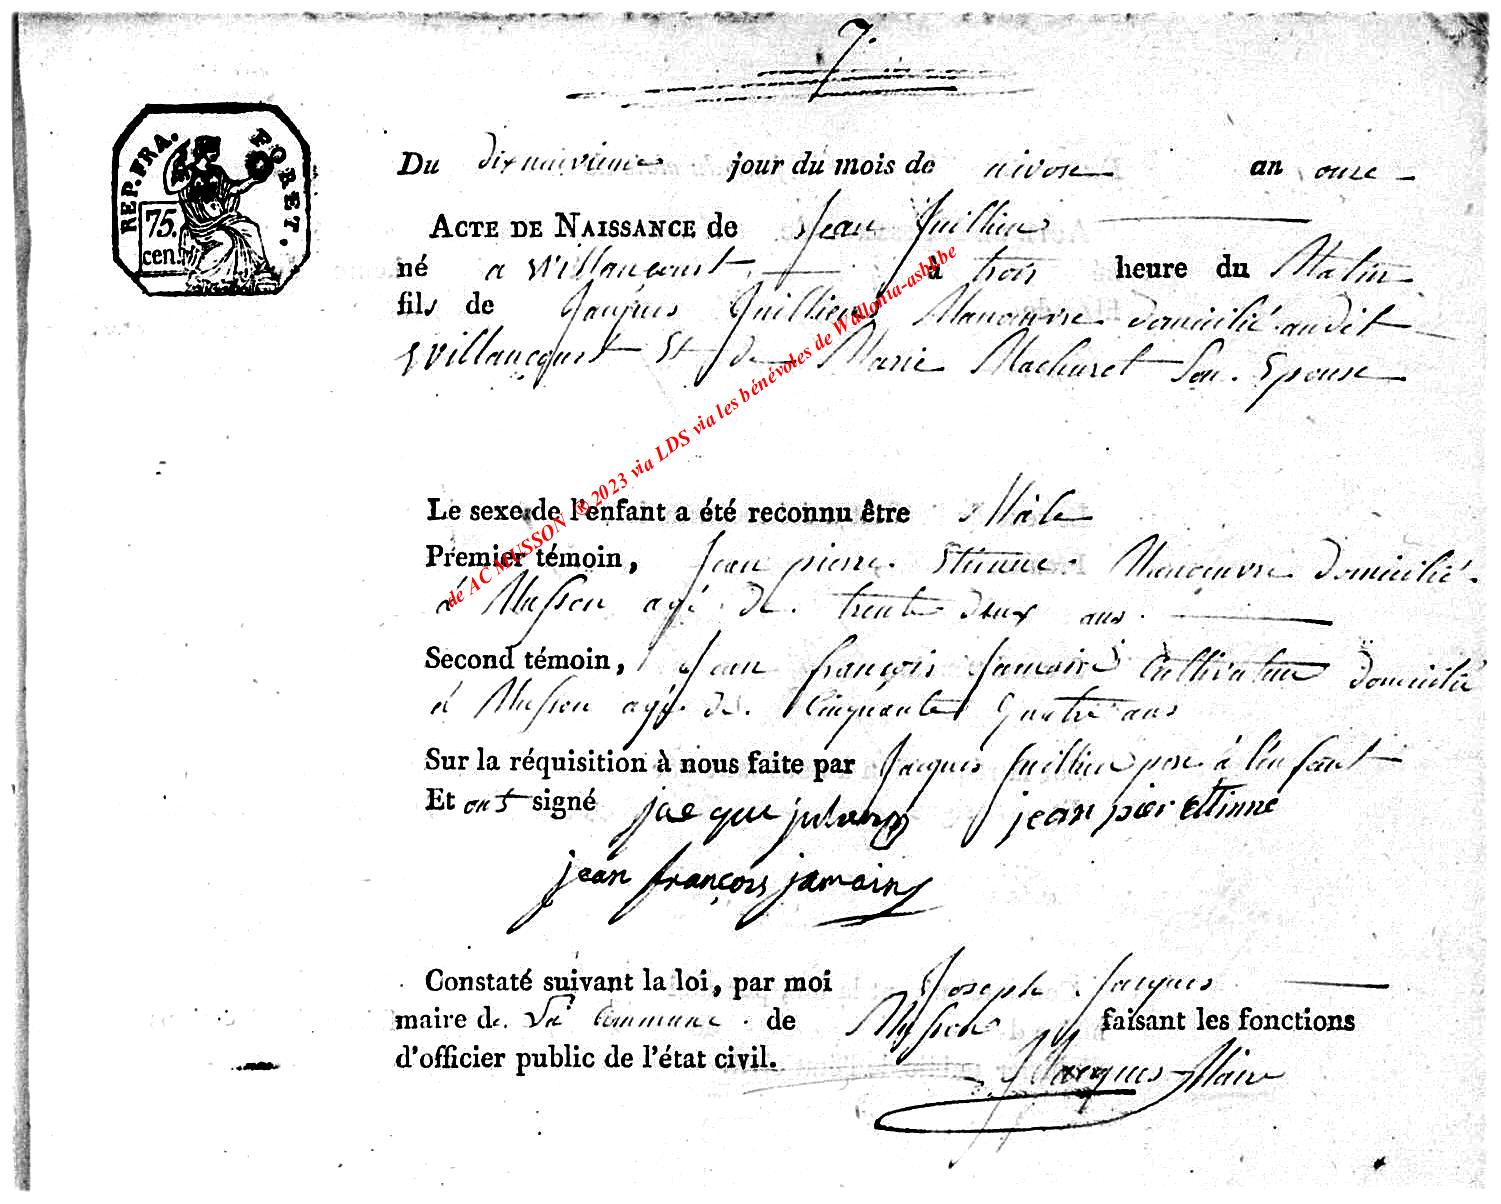 7.
REP. FRA. FORET.
75.
cen.
Du dixneuvieme jour du mois de nivose an onze
ACTE DE NAISSANCE de Jean Juillien
né a Willancourt à trois heure du Matin
fils de Jacques Juillien Manœuvre domicilié audit
Willancourt Et de Marie Machuret Son Epouse
Le sexe de l'enfant a été reconnu être Mâle
Premier témoin, Jean pierre Etienne Manœuvre domicilié
á Musson agé de trente deux ans
Second témoin, Jean françois Jamain Cultivateur domicilié
á Musson agé de Cinquante quatre ans
Sur la réquisition à nous faite par Jacques Juillien pere á l'enfant
Et ont signé jacque jean pier Etinne
jean françois jamain
Constaté suivant la loi, par moi Joseph Jacques
maire de La Commune de Musson faisant les fonctions
d'officier public de l'état civil.
J Jacques Maire
de AC MUSSON ® 2023 via LDS via les bénévoles de Wallonia-asbl.be